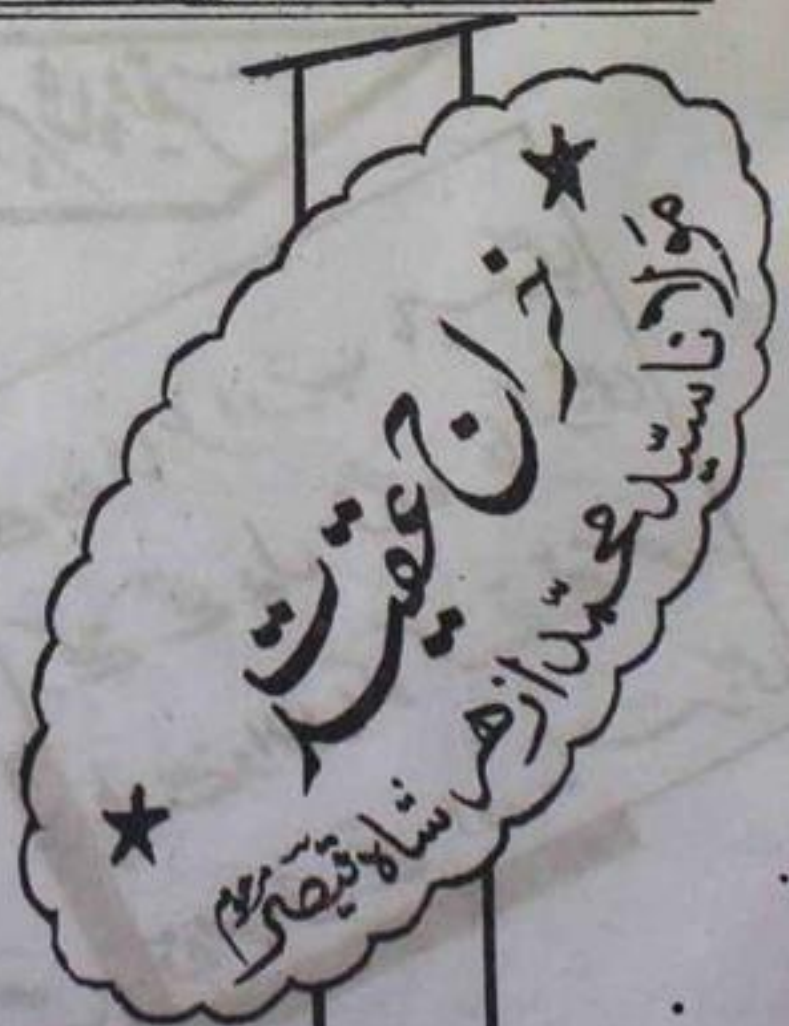 خراج عقیدت
مولانا سید محمد ازھر شاہ قیصر مرحوم